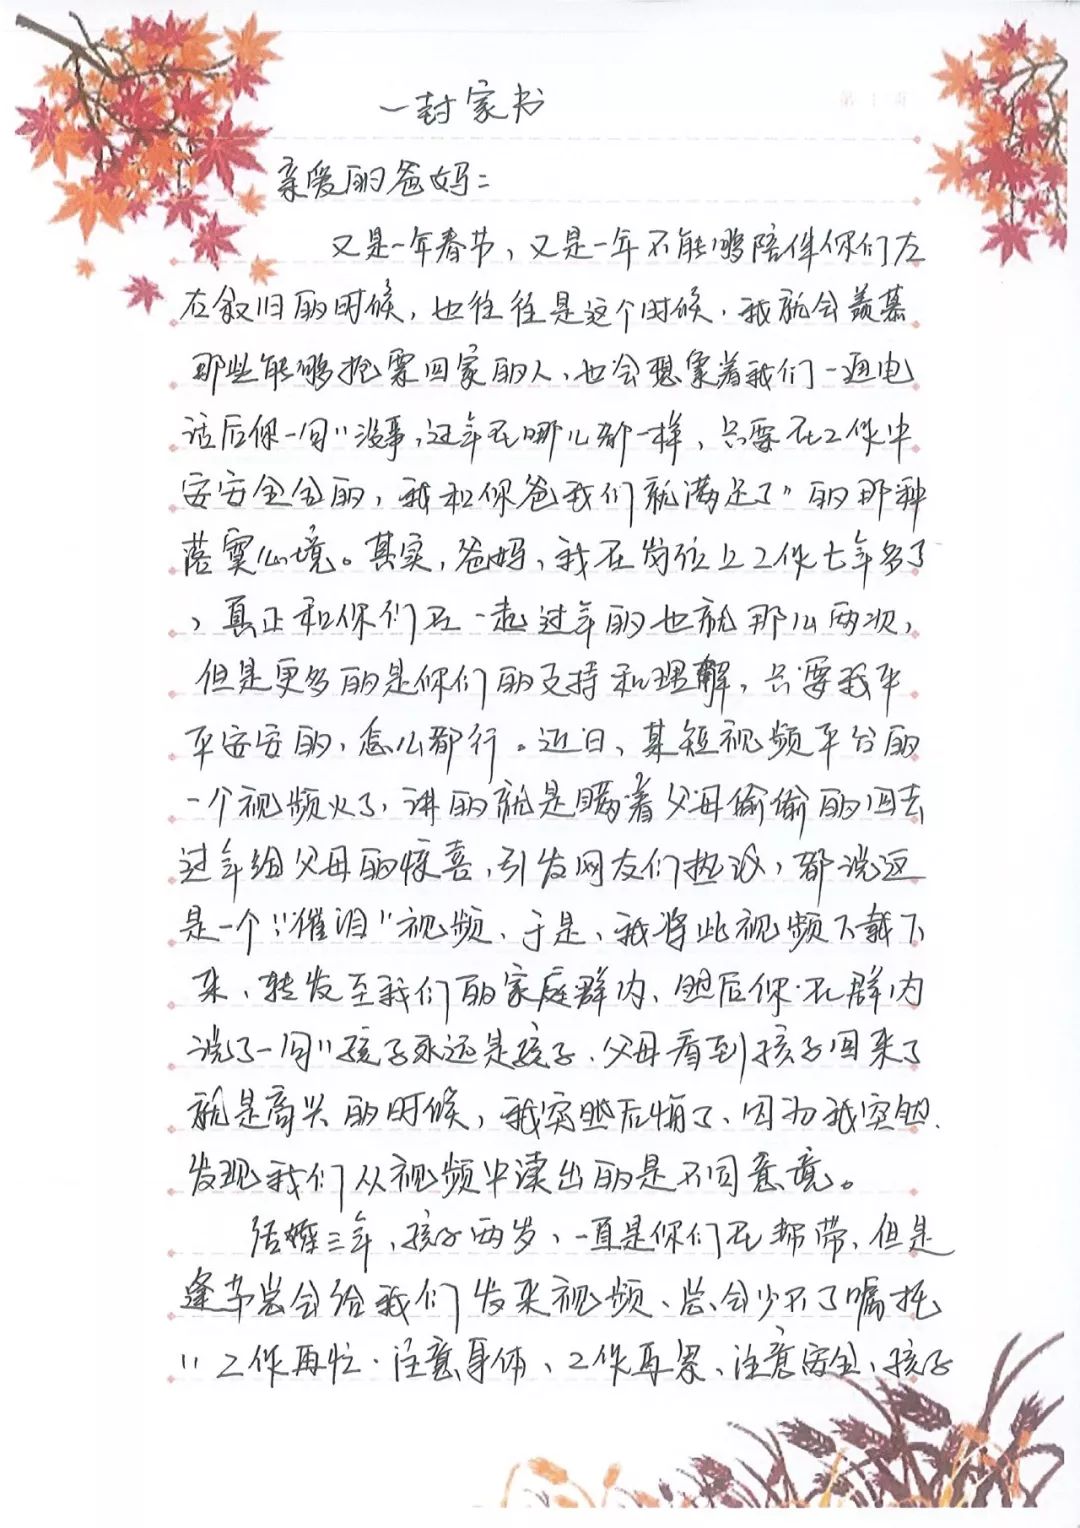 第1页
一封家书
亲爱的爸妈：
又是一年春节，又是一年不能够陪伴你们左
右叙旧的时候，也往往是这个时候，我就会羡慕
那些能够抢票回家的人，也会想象着我们一通电
话后你一句"没事，过年在哪儿都一样，只要在工作中
安安全全的，我和你爸我们就满足了"的那种
落寞心境。其实，爸妈，我在岗位上工作七年多了
，真正和你们在一起过年的也就那么两次，
但是更多的是你们的支持和理解，只要我平
平安安的，怎么都行。近日，某短视频平台的
一个视频火了，讲的就是瞒着父母偷偷的回去
过年给父母的惊喜，引发网友们热议，都说这
是一个"催泪"视频，于是，我将此视频下载下
来，转发至我们的家庭群内，然后你在群内
说了一句"孩子永远是孩子，父母看到孩子回来了
就是高兴的时候，我突然后悔了，因为我突然
发现我们从视频中读出的是不同意境。
结婚三年，孩子两岁，一直是你们在帮带，但是
逢节总会给我们发来视频，总会少不了嘱托
"工作再忙，注意身体，工作再累，注意安全，孩子